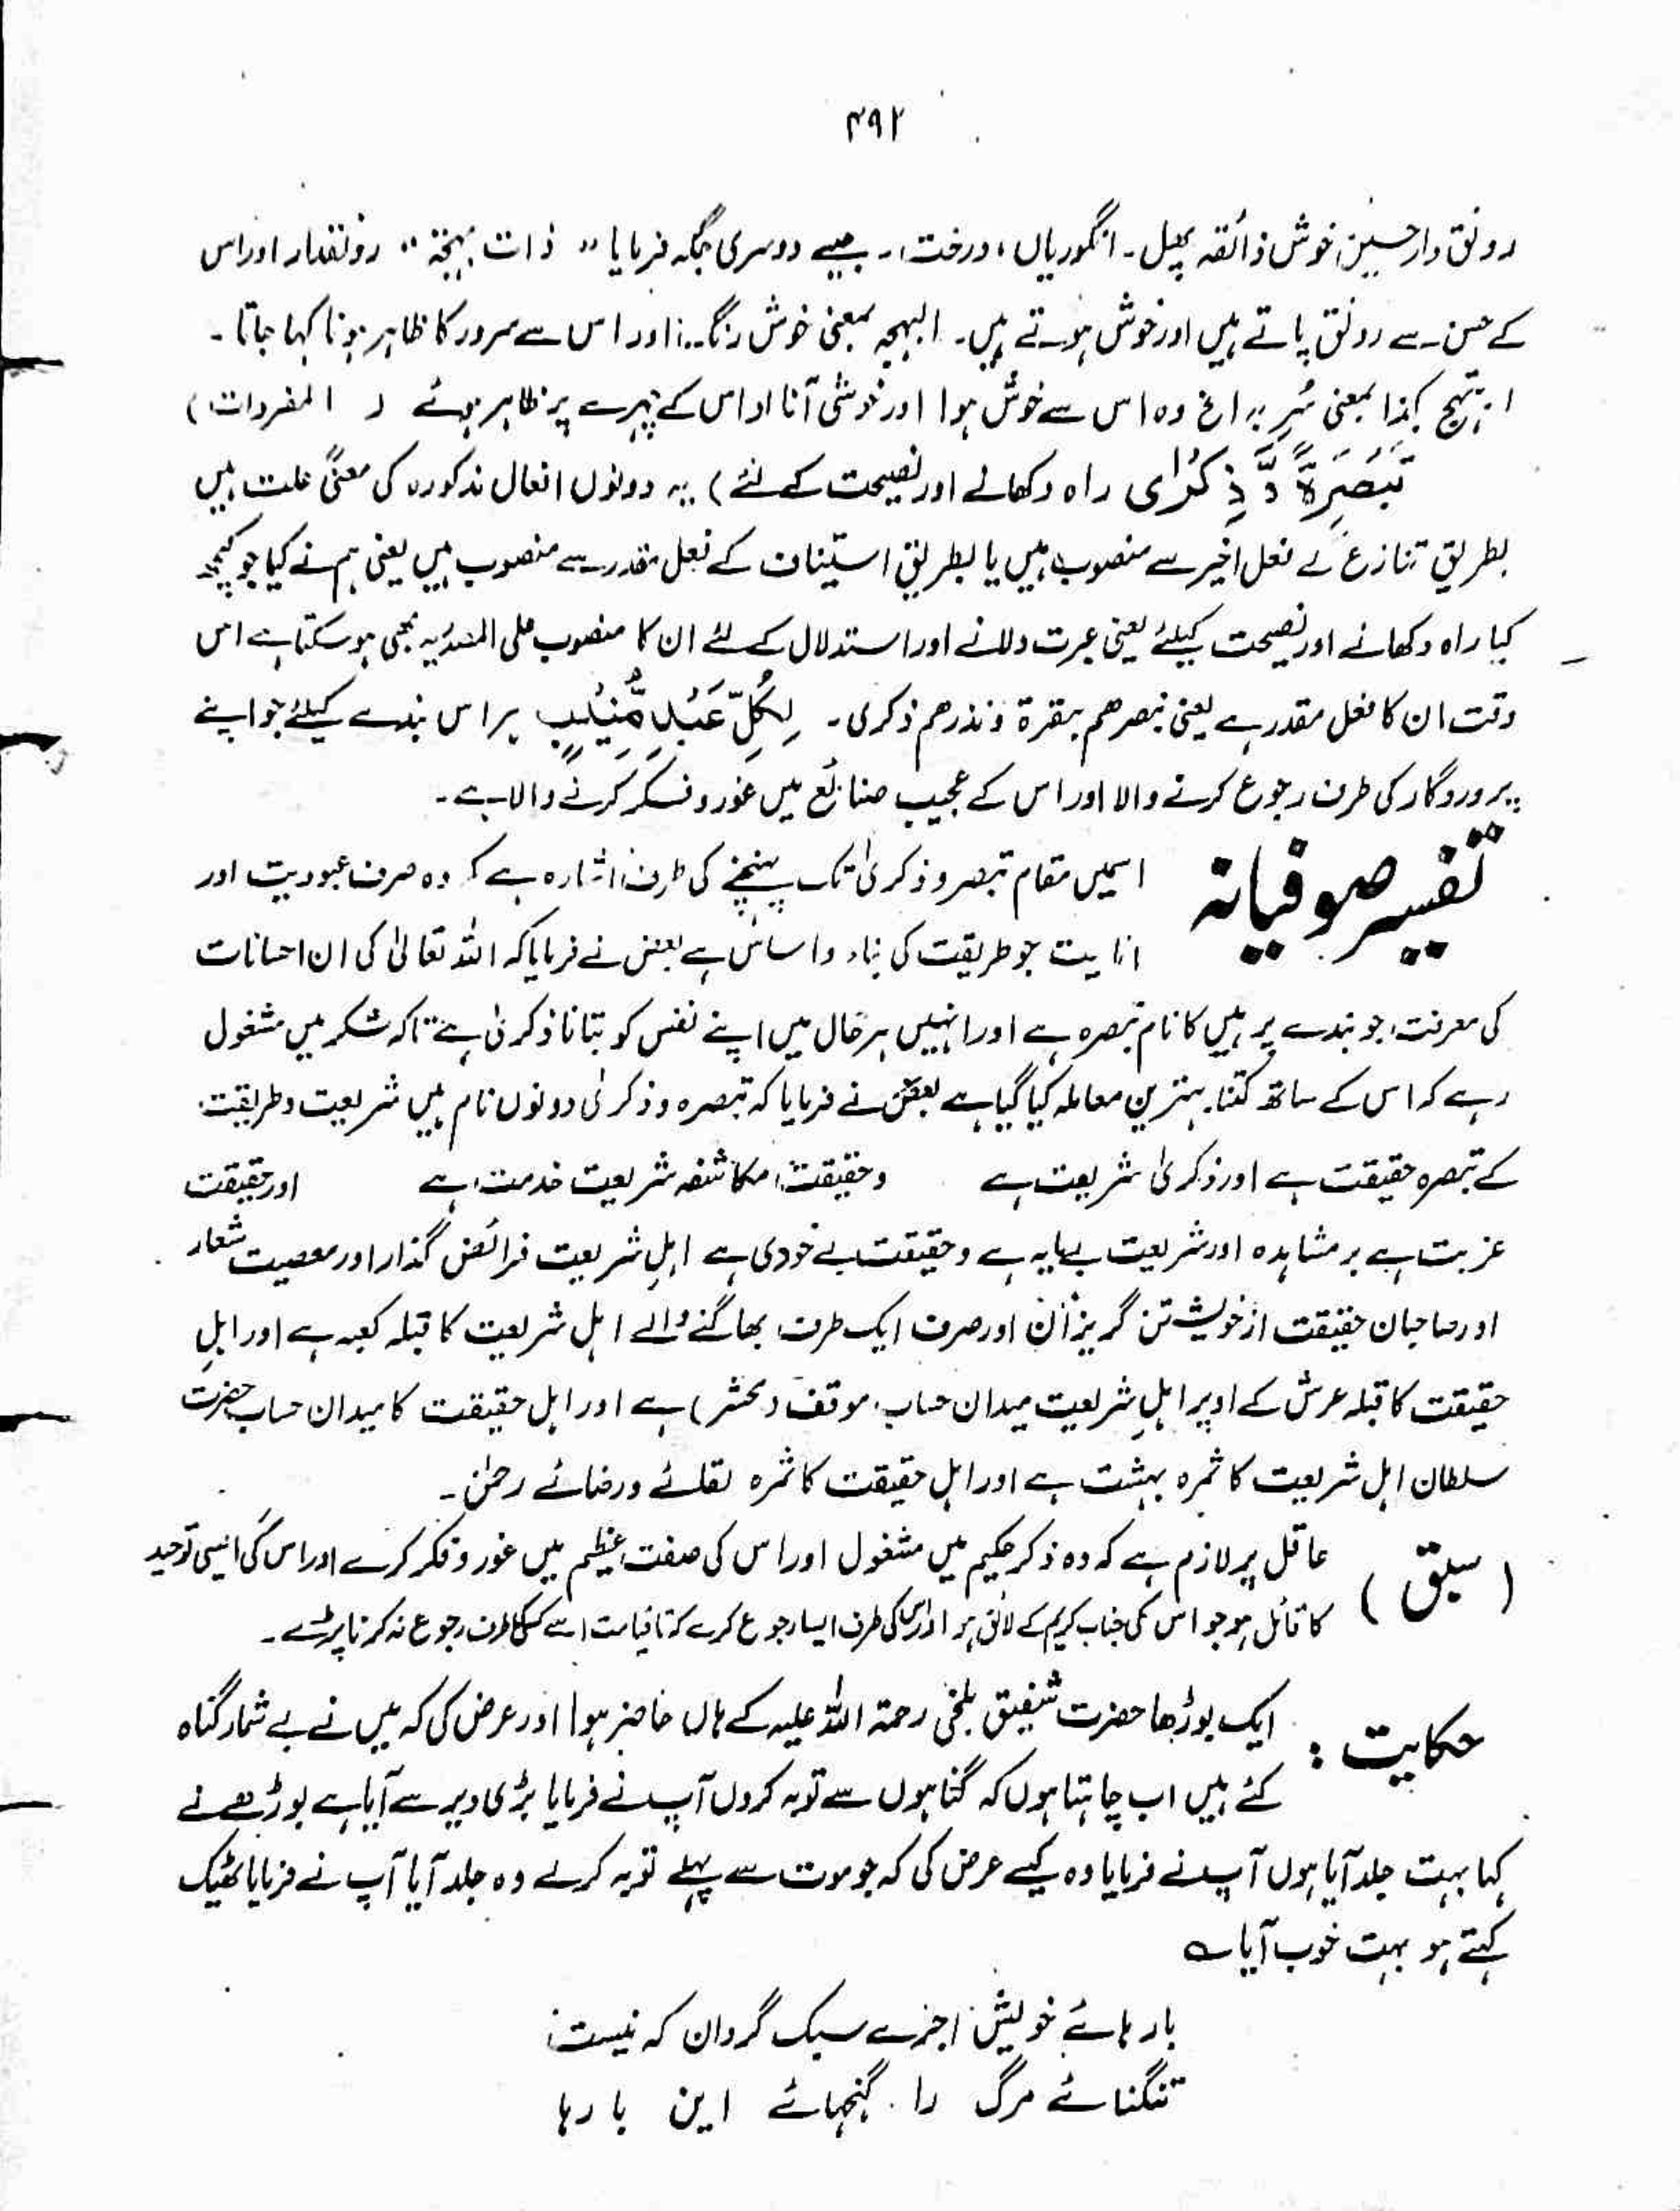 ۴۹۲
رونق دار حسین خوش ذائقہ پھل۔ انگوریاں، درخت،۔ جیسے دوسری جگہ فرمایا " ذات بہجۃ " رونقدار اور اس
کے حسن سے رونق پاتے ہیں اور خوش ہوتے ہیں۔ البہجہ بمعنی خوش رنگ اور اس سے سرور کا ظاہر ہونا کہا جاتا۔
ابتہج بکذا بمعنی سُر بہ الخ وہ اس سے خوش ہوا اور خوشی آنا اور اس کے چہرے پر ظاہر ہوئے ( المفردات )
تَبْصِرَةً وَّ ذِکْرٰی راہ دکھانے اور نصیحت کے لئے ) یہ دونوں افعال مذکورہ کی معنیً علت ہیں
بطریقِ تنازع کے فعل اخیر سے منصوب ہیں یا بطریق استیناف کے فعل مقدر سے منصوب ہیں یعنی ہم نے کیا جو کچھ
کیا راہ دکھانے اور نصیحت کیلئے یعنی عبرت دلانے اور استدلال کے لئے ان کا منصوب علی المصدریہ بھی ہو سکتا ہے اس
وقت ان کا فعل مقدر ہے یعنی نبصرھم تبصرۃ ونذرھم ذکری۔ لِکُلِّ عَبْدٍ مُّنِیْبٍ ہر اس بندے کیلئے جو اپنے
پروردگار کی طرف رجوع کرنے والا اور اس کے عجیب صنائع میں غور و فکر کرنے والا ہے۔
تفسیر صوفیانہ اسمیں مقام تبصر و ذکریٰ تک پہنچنے کی طرف اشارہ ہے کہ وہ صرف عبودیت اور
انابیت جو طریقت کی بناء و اساس ہے بعض نے فرمایا کہ اللہ تعالیٰ کی ان احسانات
کی معرفت، جو بندے پر ہیں کا نام تبصرہ ہے اور انہیں ہر حال میں اپنے نفس کو بتانا ذکریٰ ہے تاکہ شکر میں مشغول
رہے کہ اس کے ساتھ کتنا بہترین معاملہ کیا گیا ہے بعض نے فرمایا کہ تبصرہ و ذکریٰ دونوں نام ہیں شریعت و طریقت
کے تبصرہ حقیقت ہے اور ذکریٰ شریعت ہے وحقیقت مکاشفہ شریعت خدمت ہے اور حقیقت
غربت ہے بر مشاہدہ اور شریعت بے پایہ ہے وحقیقت بے خودی ہے اہلِ شریعت فرائض گذار اور معصیت شعار
اور صاحبان حقیقت از خویشتن گریزان اور صرف ایک طرف بھاگنے والے اہل شریعت کا قبلہ کعبہ ہے اور اہلِ
حقیقت کا قبلہ عرش کے اوپر اہلِ شریعت میدان حساب، موقف (محشر) ہے اور اہل حقیقت کا میدان حساب حضرت
سلطان اہل شریعت کا ثمرہ بہشت ہے اور اہل حقیقت کا ثمرہ لقائے و رضائے رحمٰن۔
( سبق ) عاقل پر لازم ہے کہ وہ ذکر حکیم میں مشغول اور اس کی صفت عظیم میں غور و فکر کرے اور اس کی ایسی توحید
کا قائل ہو جو اس کی جناب کریم کے لائق ہو اور اس کی طرف ایسا رجوع کرے کہ تا قیامت اسے کسی کی طرف رجوع نہ کرنا پڑے۔
حکایت : ایک بوڑھا حضرت شفیق بلخی رحمۃ اللہ علیہ کے ہاں حاضر ہوا اور عرض کی کہ میں نے بے شمار گناہ
کئے ہیں اب چاہتا ہوں کہ گناہوں سے توبہ کروں آپ نے فرمایا بڑی دیر سے آیا ہے بوڑھے نے
کہا بہت جلد آیا ہوں آپ نے فرمایا وہ کیسے عرض کی کہ جو موت سے پہلے توبہ کرلے وہ جلد آیا آپ نے فرمایا ٹھیک
کہتے ہو بہت خوب آیا ؎
بارہائے خویش اجزے سبک گردان کہ نیست
تنگنائے مرگ را گنجہائے این بارہا